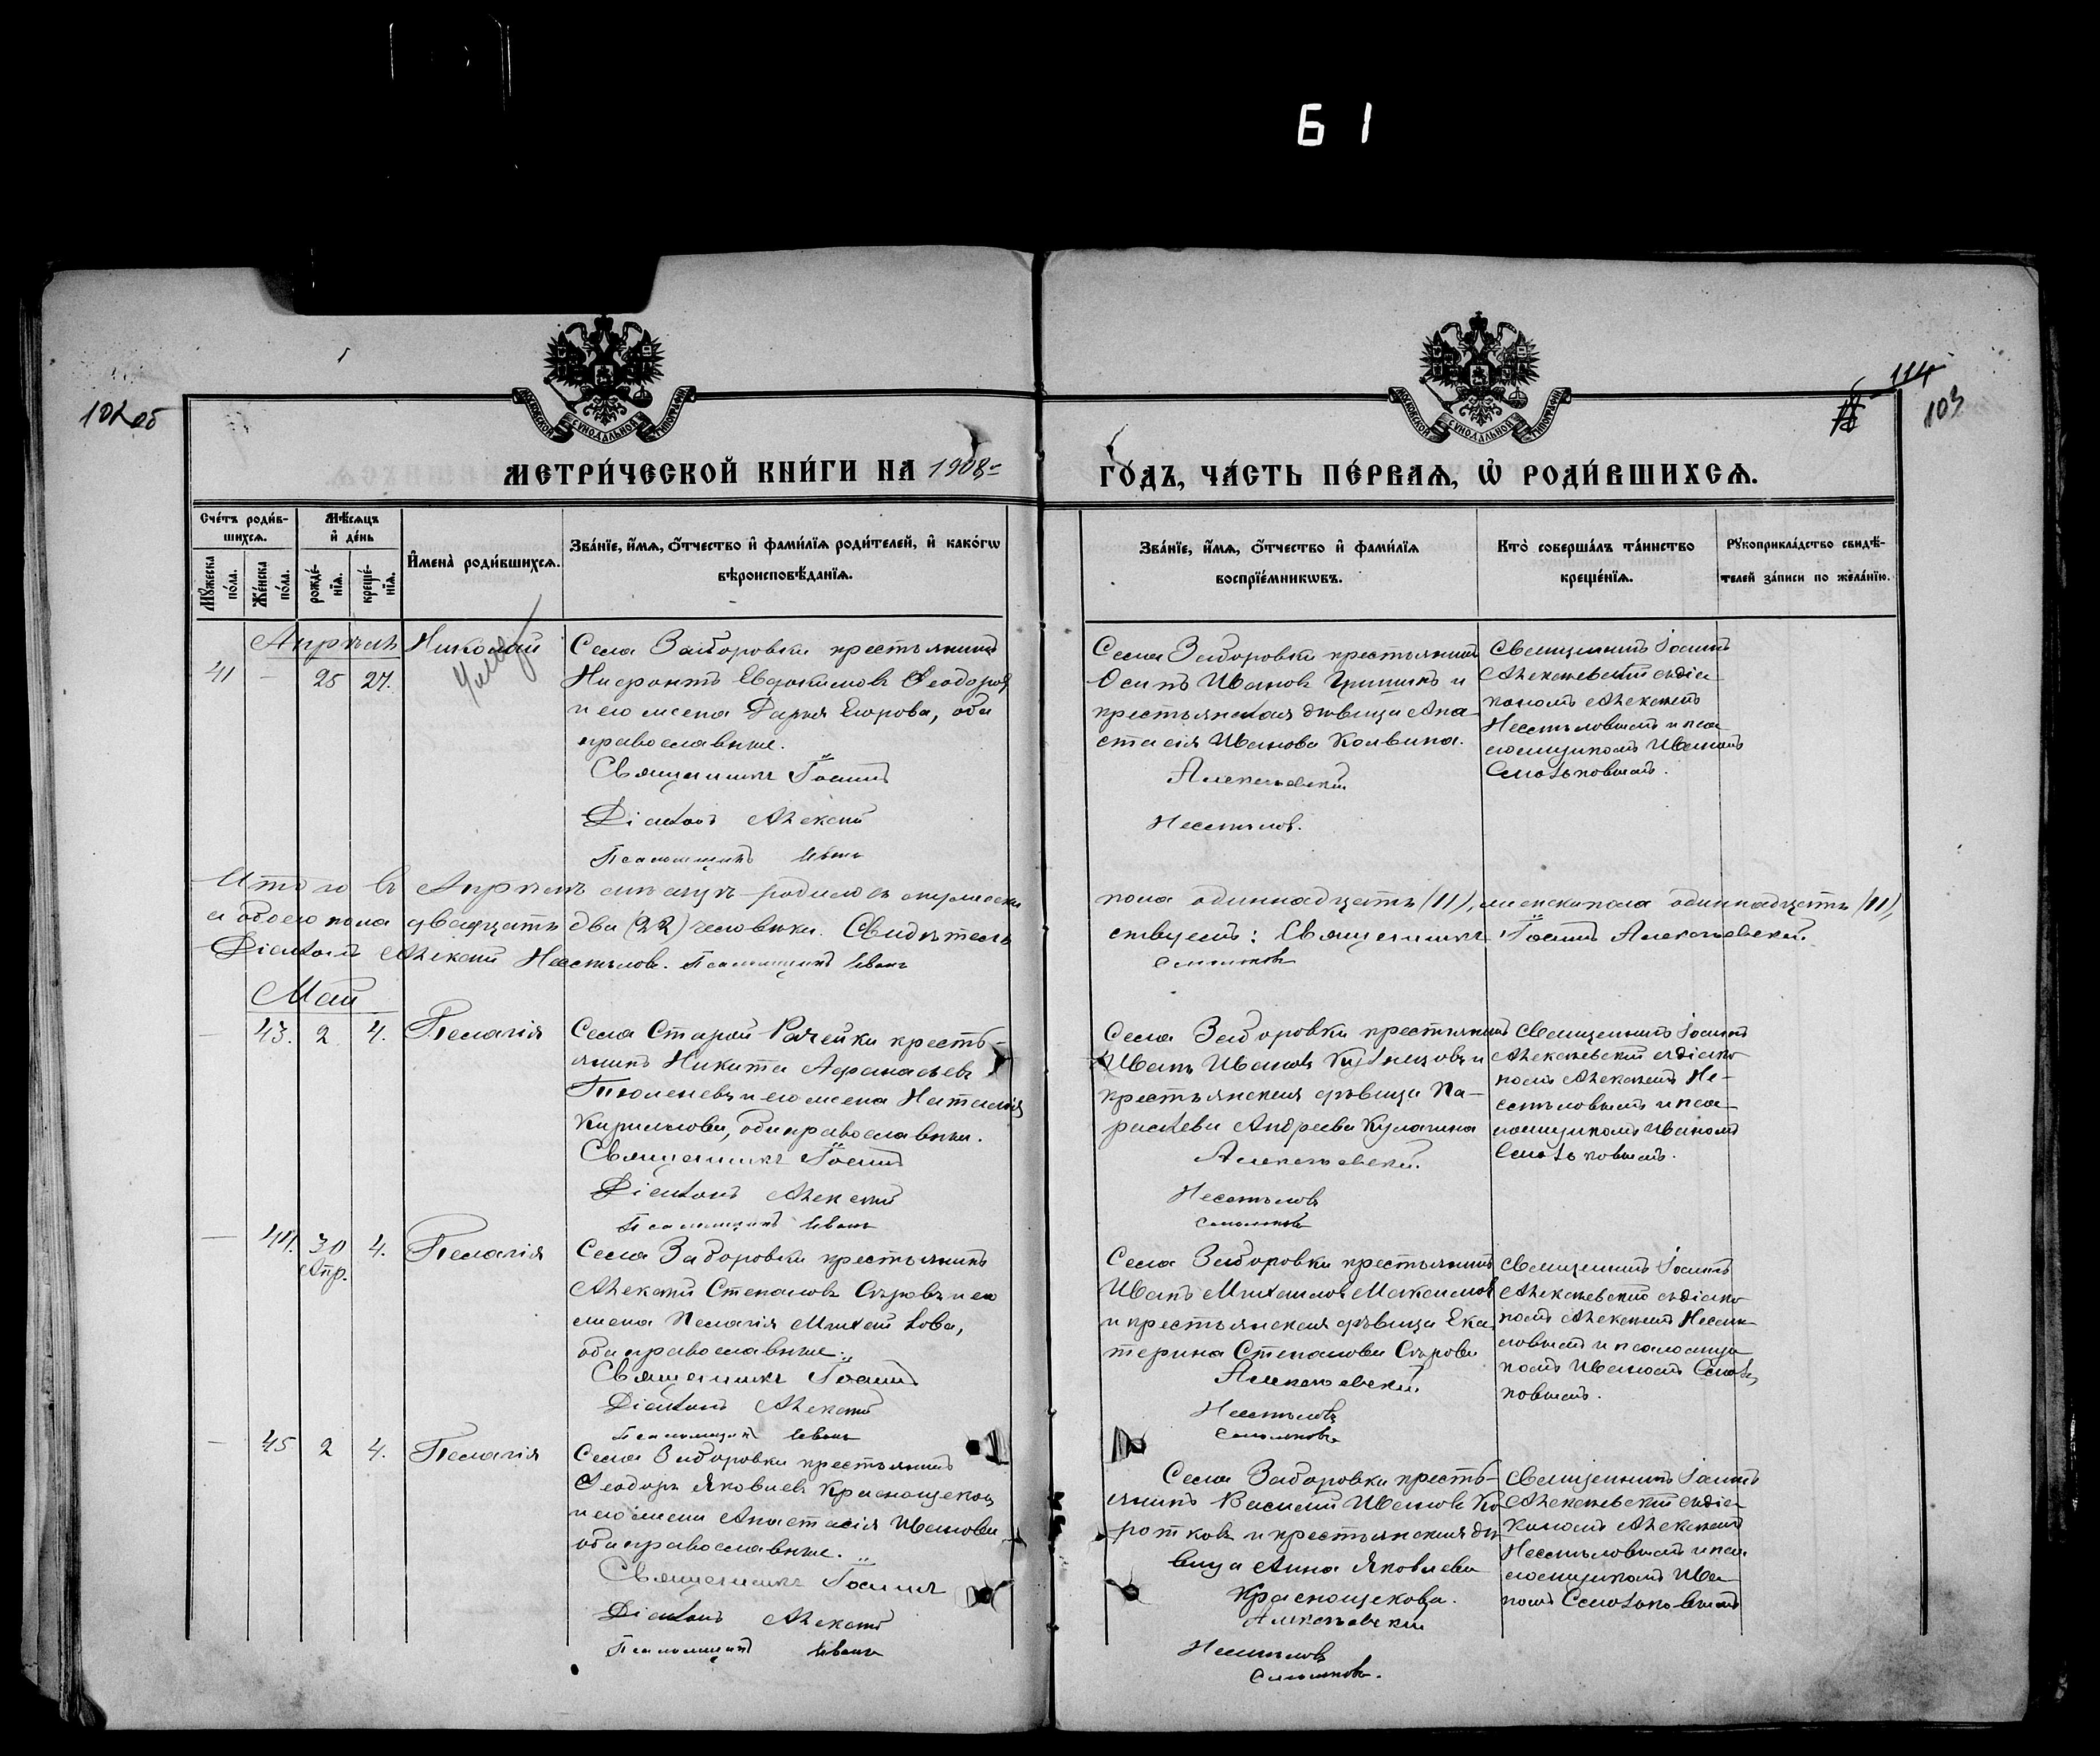 Б 1
102 об
114
103
МЕТРИ́ЧЕСКОЙ КНИ́ГИ НА 1908
ГО́ДЪ, ЧА́СТЬ ПЕ́РВАѦ, Ѡ҆ РОДИ́ВШИХСѦ.
Сче́тъ роди́в-
шихсѧ.
Мѣ́сѧцъ
и҆ де́нь
Мꙋ́жеска
по́ла.
Же́нска
по́ла.
рожде́-
нїѧ.
креще́-
нїѧ.
И҆мена̀ роди́вшихсѧ.
Зва́нїе, и҆́мѧ, ѻ҆́тчество и҆ фами́лїѧ роди́телей, и҆ како́гѡ
вѣроисповѣ́данїѧ.
Зва́нїе, и҆́мѧ, ѻ҆́тчество и҆ фами́лїѧ
воспрїе́мникѡвъ.
Кто̀ соверша́лъ та́инство
креще́нїѧ.
Рꙋкоприкла́дство свидѣ́-
телей за́писи по жела́нїю.
Апрѣль
41 - 25 27.
Николай
Умер
Села Заборовки крестьянинъ
Нифонтъ Евдокимовъ Феодоров
и его жена Дарья Егорова, оба
православные.
Священникъ Іоаннъ
Діаконъ Алексій
Псаломщикъ Иванъ
Села Заборовки крестьянинъ
Осипъ Ивановъ Гришинъ и
крестьянская дѣвица Ана-
стасія Иванова Калвина.
Алекѣевскій
Несмѣлов.
Священникъ Іоаннъ
съ діа-
кономъ Алексѣемъ
Несмѣловымъ и пса-
ломщикомъ Иваномъ
Смоляковымъ.
Итого въ Апрѣлѣ мѣсяцѣ родилось мужеска
пола одиннадцать (11), женска пола одиннадцать (11),
а обоего пола двадцать два (22) человѣка. Свидѣтель
ствуетъ: Священникъ Іоаннъ
Діаконъ Алексій Несмѣлов. Псаломщикъ Иванъ
Смоляковъ
Май
- 43. 2 4.
Пелагія
Села Старой Рачейки кресть-
янинъ Никита Афанасьевъ
Тюленевъ и его жена Наталія
Кирилова, оба православные.
Священникъ Іоаннъ
Діаконъ Алексій
Псаломщикъ Иванъ
Села Заборовки крестьянинъ
Иванъ Ивановъ Кузнецовъ и
крестьянская дѣвица Па-
раскева Андреева Кулагина
Несмѣловъ
Смоляковъ
Священникъ Іоаннъ
съ діако-
номъ Алексѣемъ Не-
смѣловымъ и пса-
ломщикомъ Иваномъ
Смоляковымъ.
- 44. 30 4.
Апр.
Пелагія
Села Заборовки крестьянинъ
Алексій Степановъ Сѣровъ и его
жена Пелагія Михайлова,
оба православные.
Священникъ Іоаннъ
Діаконъ Алексій
Псаломщикъ Иванъ
Села Заборовки крестьянинъ
Иванъ Михаиловъ Максимовъ
и крестьянская дѣвица Ека-
терина Степанова Сѣрова
Несмѣловъ
Смоляковъ
Священникъ Іоаннъ
съ діако-
номъ Алексѣемъ Несмѣ-
ловымъ и псаломщи-
комъ Иваномъ Смоля-
ковымъ.
- 45 2 4.
Пелагія
Села Заборовки крестьянинъ
Феодоръ Яковлевъ Краснощековъ
и его жена Анастасія Иванова
оба православные.
Священникъ Іоаннъ
Діаконъ Алексій
Псаломщикъ Иванъ
Села Заборовки кресть-
янинъ Василій Ивановъ Ко-
ротковъ и крестьянская дѣ-
вица Анна Яковлева
Краснощекова.
Несмѣловъ
Смоляковъ.
Священникъ Іоаннъ
съ діа-
кономъ Алексѣемъ
Несмѣловымъ и пса-
ломщикомъ Ива-
номъ Смоляковымъ